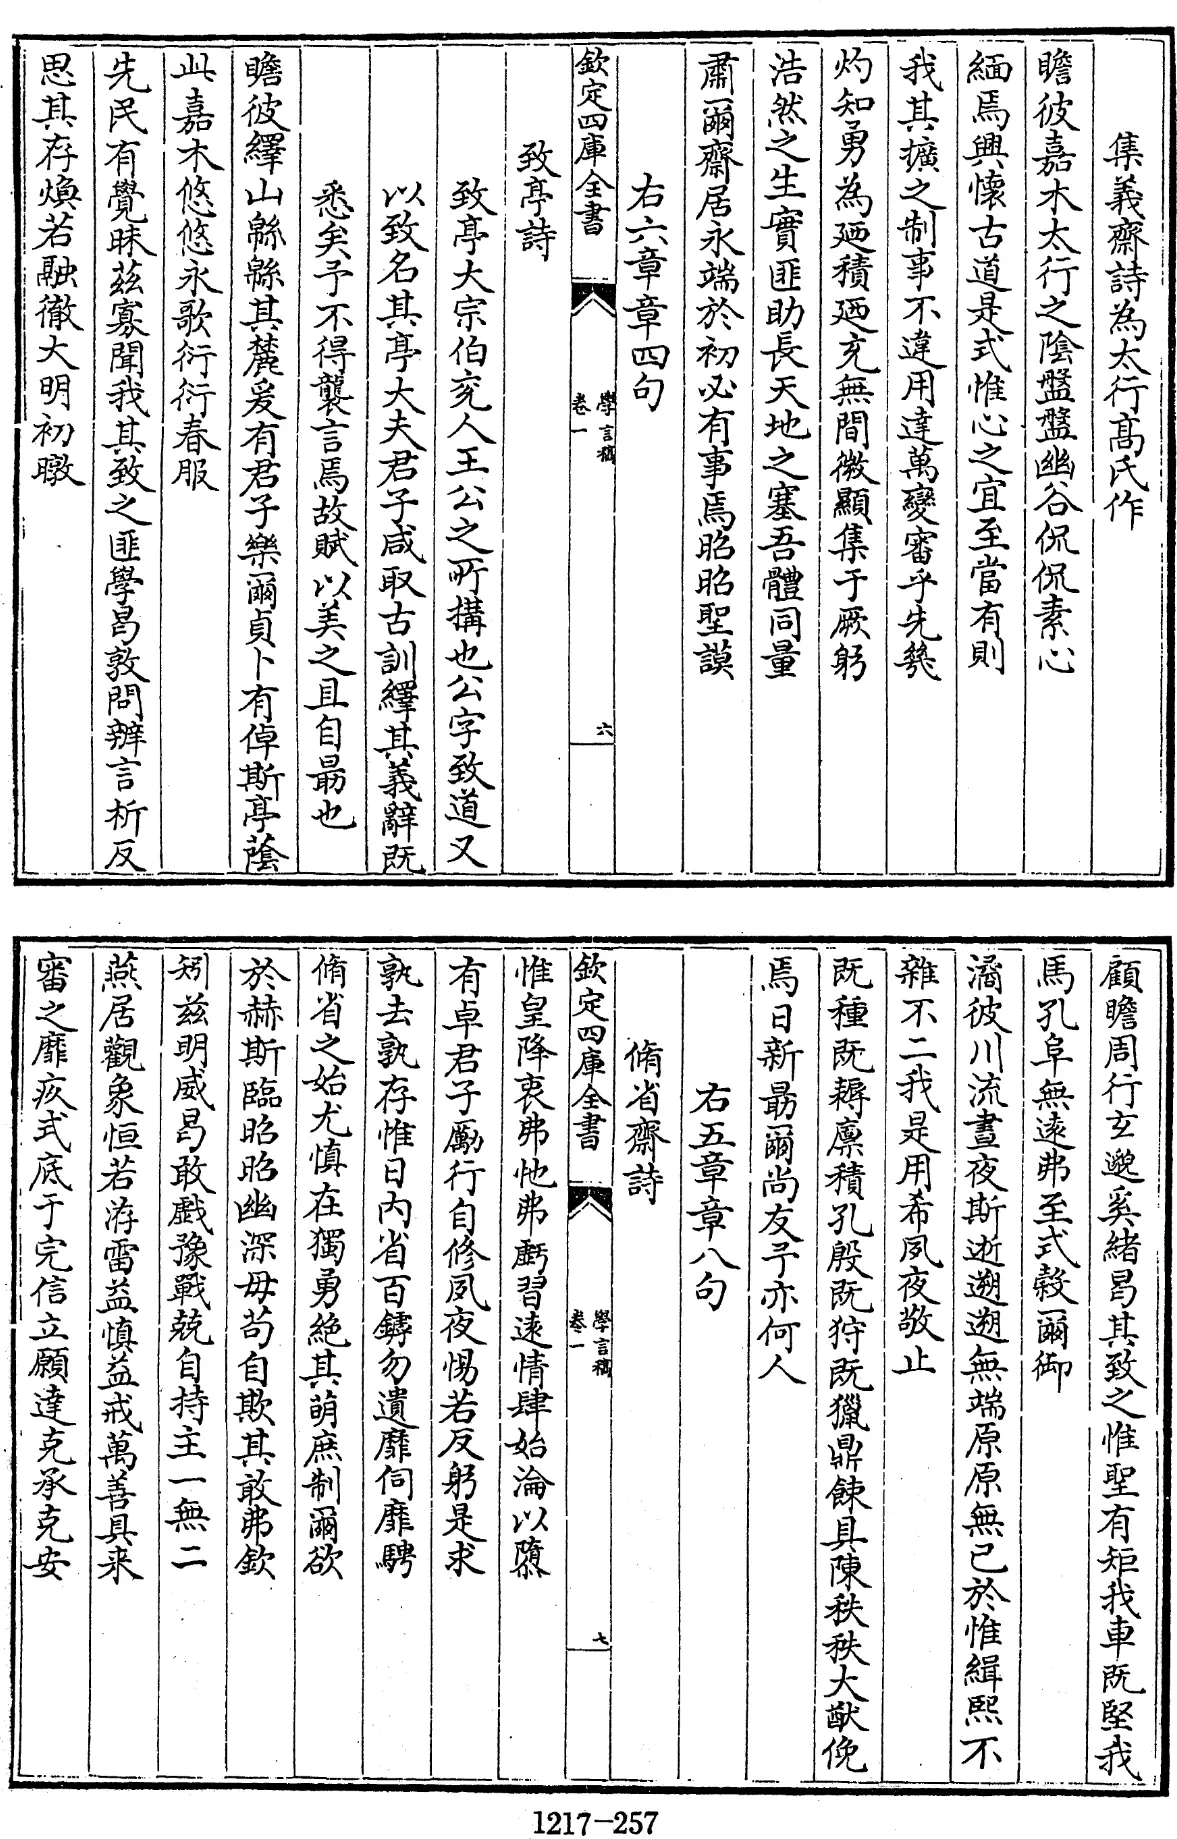 集義齋詩為太行髙氏作
瞻彼嘉木太行之陰盤盤幽谷侃侃素心
緬焉興懷古道是式惟心之宜至當有則
我其擴之制事不違用達萬變審乎先幾
灼知勇為廼積廼充無間微顯集于厥躬
浩然之生實匪助長天地之塞吾體同量
肅爾齋居永端於初必有事焉昭昭聖謨
右六章章四句
欽定四庫全書
學言稿
卷一
六
致亭詩
致亭大宗伯兖人王公之所搆也公字致道又
以致名其亭大夫君子咸取古訓繹其義辭既
悉矣予不得襲言焉故賦以美之且自勗也
瞻彼繹山緜緜其麓爰有君子樂爾貞卜有倬斯亭蔭
此嘉木悠悠永歌衍衍春服
先民有覺昧茲寡聞我其致之匪學曷敦問辨言析反
思其存煥若融徹大明初暾
顧瞻周行玄邈奚緒曷其致之惟聖有矩我車既堅我
馬孔阜無遠弗至式榖爾御
潏彼川流晝夜斯逝遡遡無端原原無已於惟緝熙不
雜不二我是用希夙夜敬止
既種既耨廪積孔殷既狩既獵鼎餗具陳秩秩大猷俛
焉日新勗爾尚友予亦何人
右五章章八句
脩省齋詩
欽定四庫全書
學言稿
卷一
七
惟皇降衷弗忚弗虧習遠情肆始淪以隳
有卓君子勵行自修夙夜惕若反躬是求
孰去孰存惟日内省百鏬勿遺靡伺靡騁
脩省之始尤慎在獨勇絶其萌庶制爾欲
於赫斯臨昭昭幽深毋苟自欺其敢弗欽
矧兹明威曷敢戲豫戰兢自持主一無二
燕居觀象恒若洊雷益慎益戒萬善具来
審之靡疚式底于完信立願達克承克安
1217-257